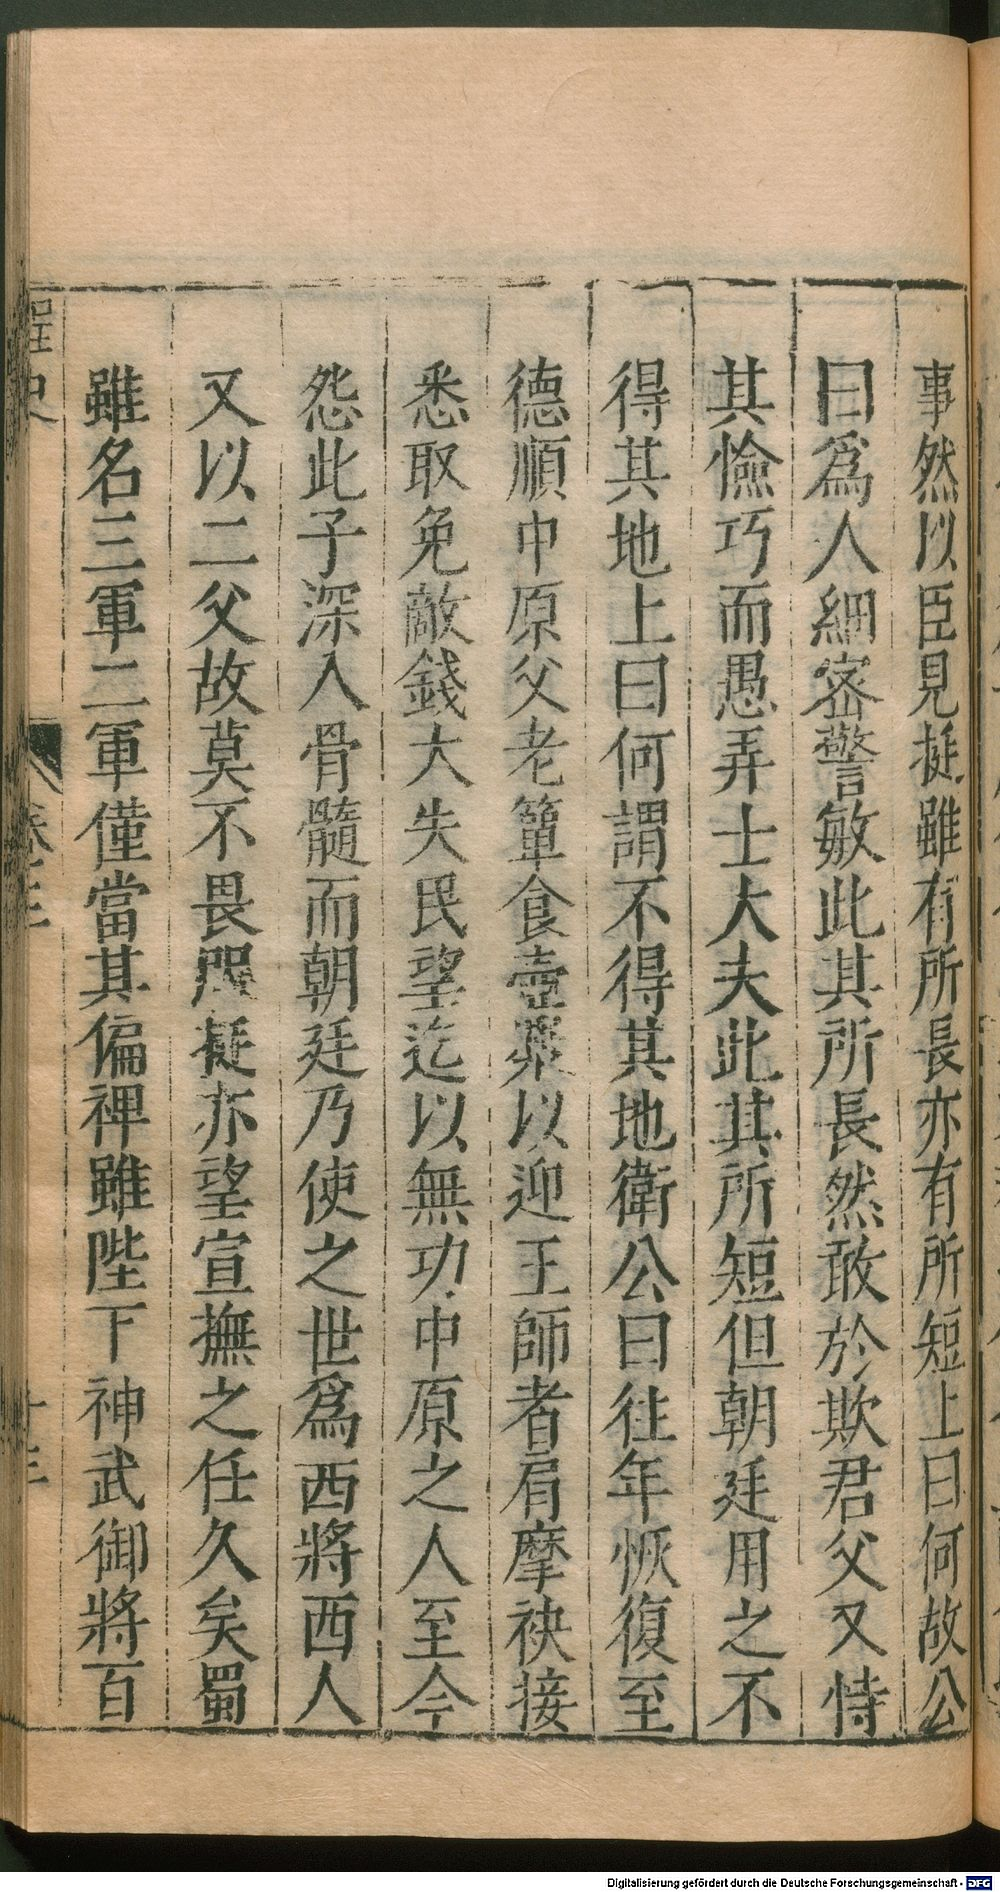 事然以臣見挺雖有所長亦有所短上曰何故公
曰爲人細密警敏此其所長然敢於欺君父又恃
其憸巧而愚弄士大夫此其所短但朝廷用之不
得其地上曰何謂不得其地衛公曰往年恢復至
德順中原父老簞食壺漿以迎王師者肩摩袂接
悉取免敵錢大失民望迄以無功中原之人至今
怨此子深入骨髓而朝廷乃使之世爲西將西人
又以二父故莫不畏服挺亦望宣撫之任久矣蜀
雖名三軍二軍僅當其偏裨雖陛下神武御將百
桯史
卷十三
十三
Digitalisierung gefördert durch die Deutsche Forschungsgemeinschaft - DFG